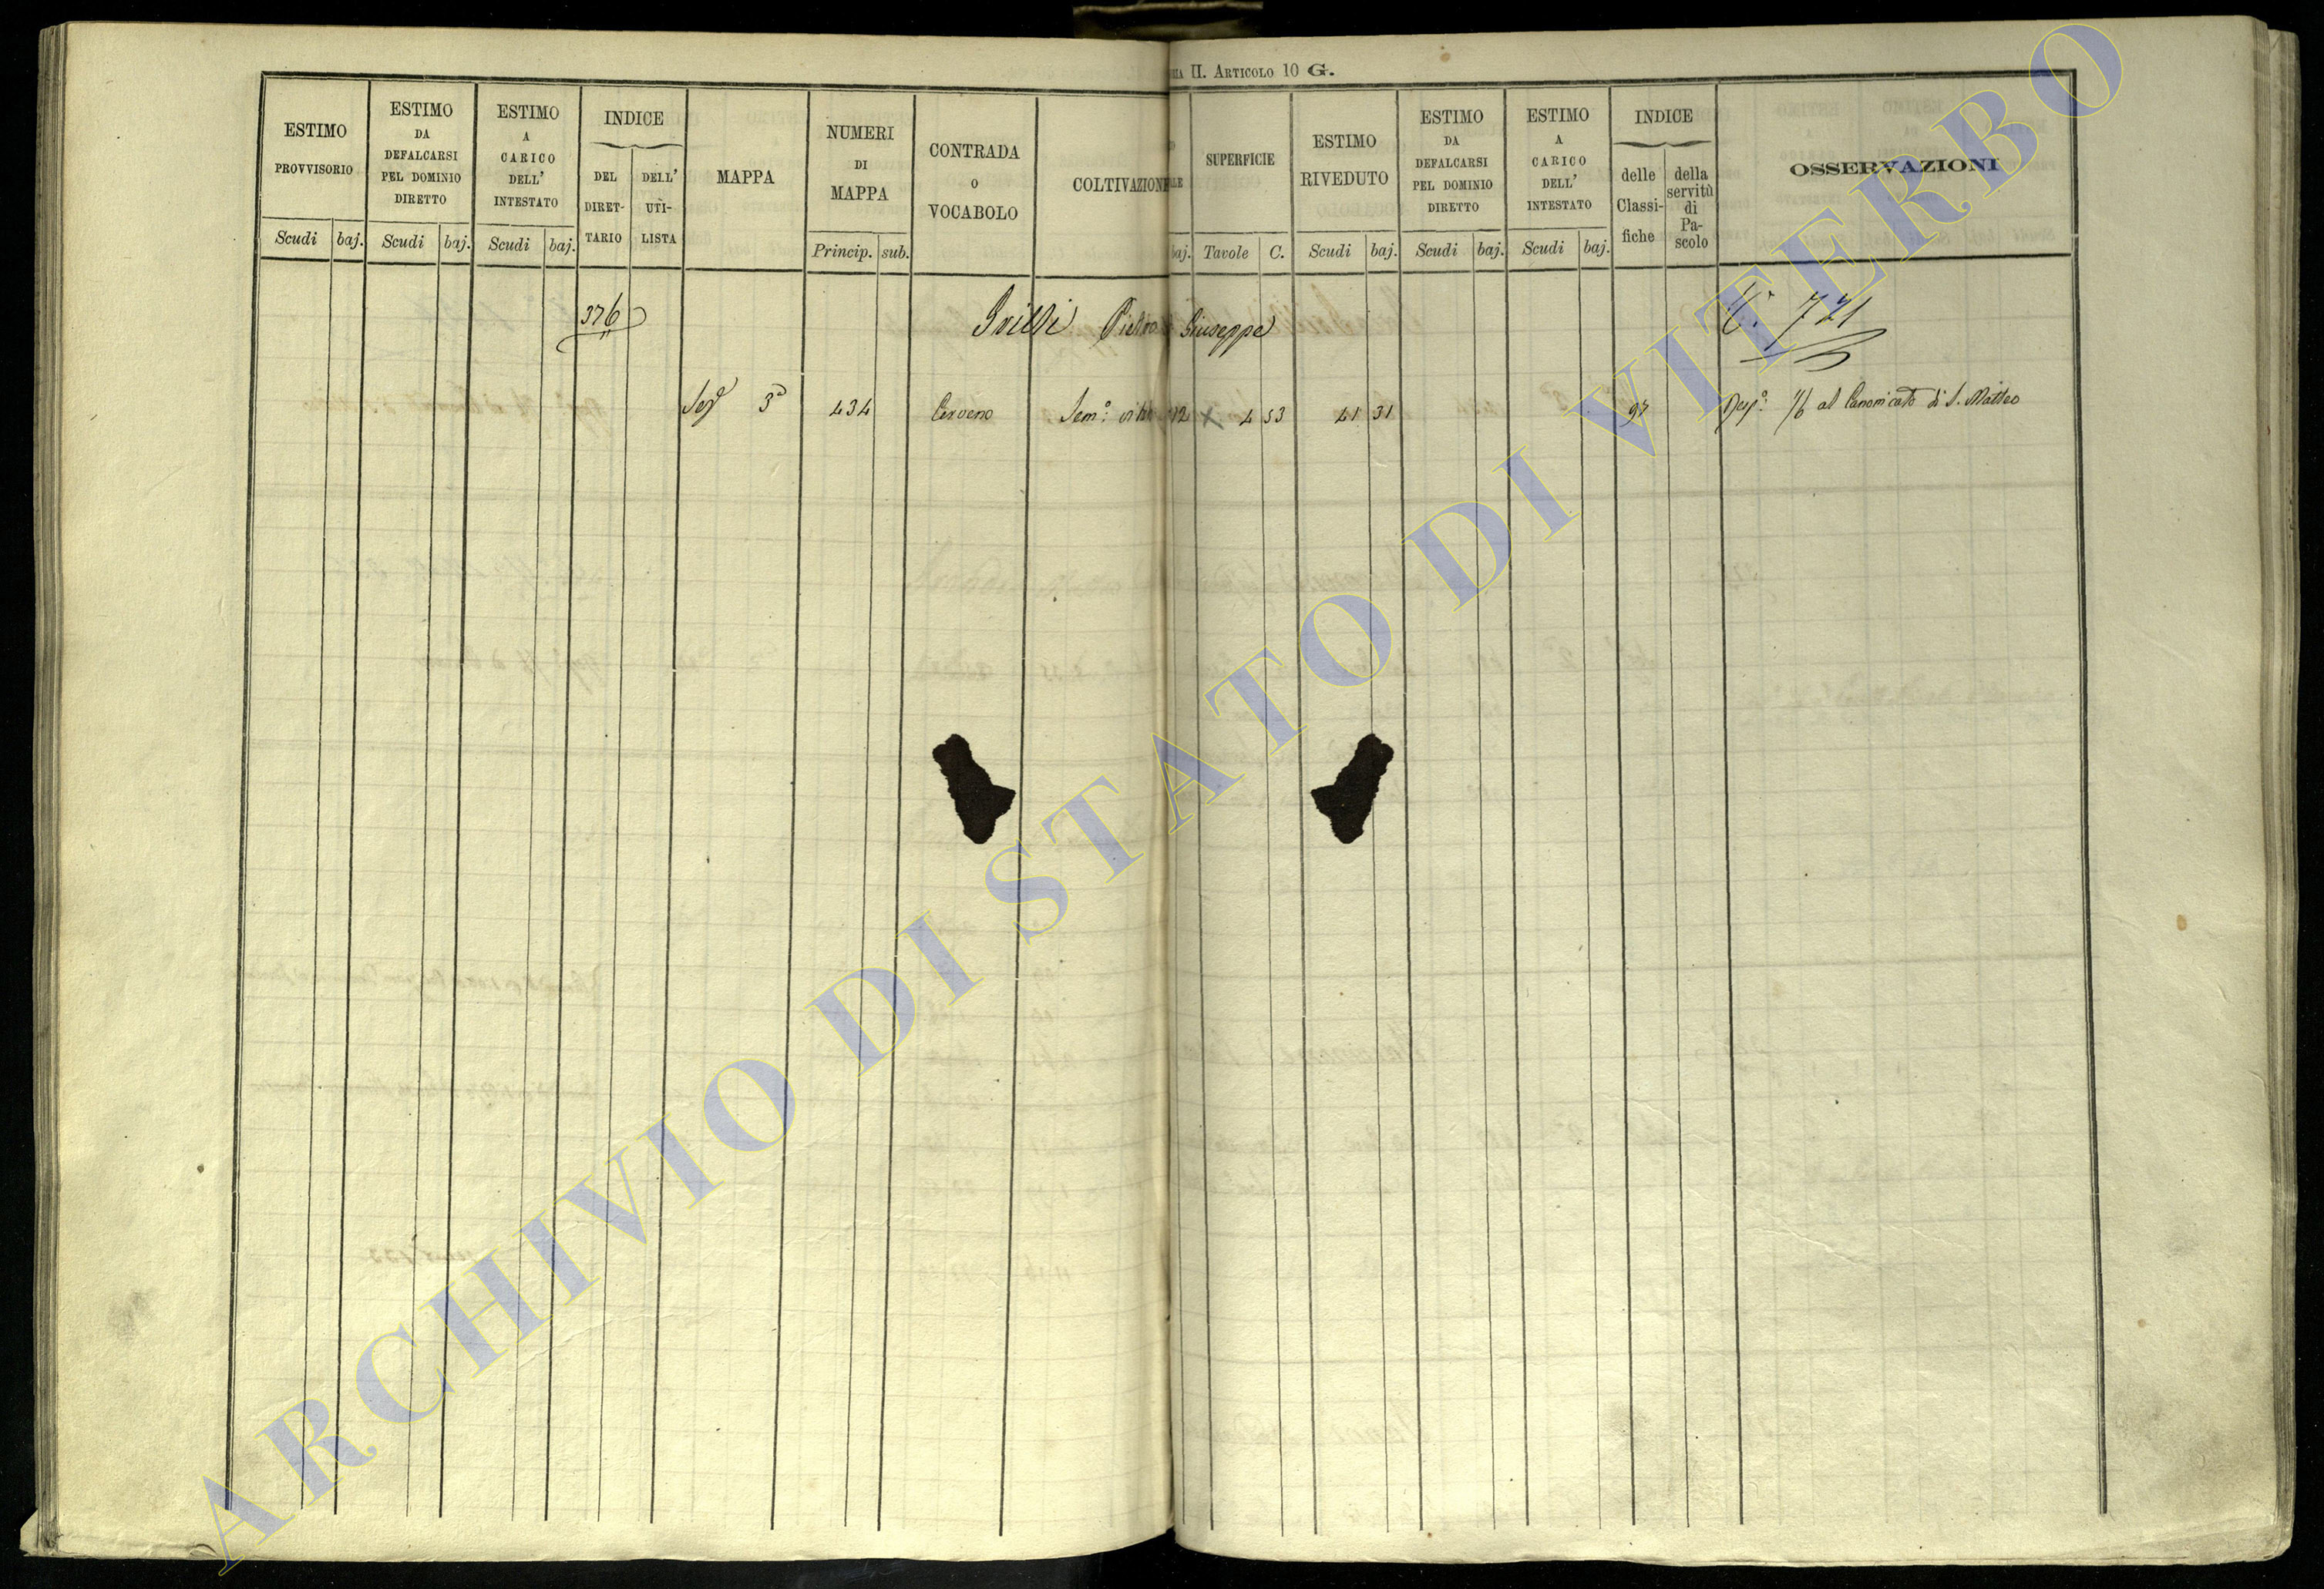 II. ARTICOLO 10 G.
ESTIMO PROVVISORIO
Scudi baj.
ESTIMO DA DEFALCARSI PEL DOMINIO DIRETTO
Scudi baj.
ESTIMO A CARICO DELL' INTESTATO
Scudi baj.
INDICE
DEL DIRET-
TARIO
DELL' UTI-
LISTA
MAPPA
NUMERI DI MAPPA
Princip. sub.
CONTRADA O VOCABOLO
COLTIVAZIONE
baj.
SUPERFICIE
Tavole C.
ESTIMO RIVEDUTO
Scudi baj.
ESTIMO DA DEFALCARSI PEL DOMINIO DIRETTO
Scudi baj.
ESTIMO A CARICO DELL' INTESTATO
Scudi baj.
INDICE
delle Classi-
fiche
della servitù di Pa-
scolo
OSSERVAZIONI
376 Pietro Giuseppe 721
3ª 434 Cerveno Sem.º 12 4 53 41 31 97 Risp.º 1/6 al Canonicato di S. Matteo
ARCHIVIO DI STATO DI VITERBO